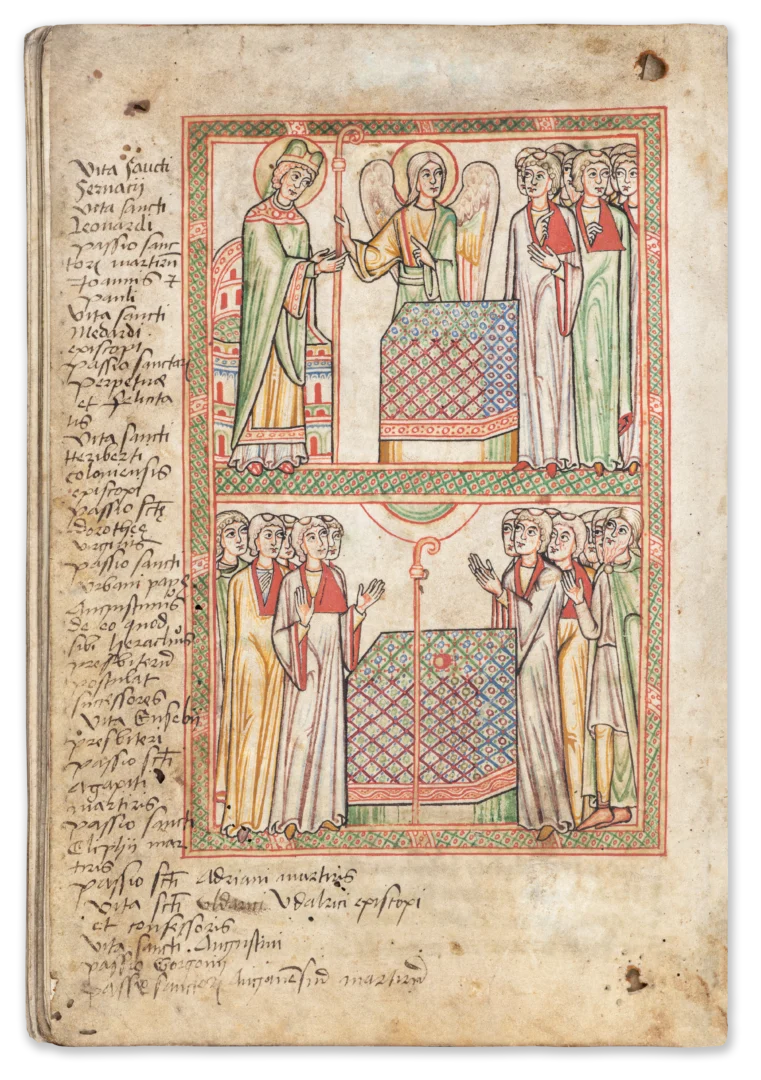 Vita sancti
Servacij
Vita sancti
Leonardi
passio sanc
toru martiru
Joannis &
Pauli
Vita sancti
Medardi
episcopi
passio sanctaru
Perpetuæ
et Felicita
tis
Vita sancti
Heriberti
coloniensis
episcopi
passio sctę
dorotheę
virginis
passio sancti
Urbani papę
Augustinus
de eo quod
sibi Heraclius
presbiterū
postulat
successores
Vita Eusebij
presbiteri
passio scti
Agapiti
martiris
passio sancti
Eliphij mar
tiris
passio scti Adriani martiris
Vita scti Udalrici episcopi
et confessoris
Vita sancti Augustini
passio Gorgonij
passio martirū